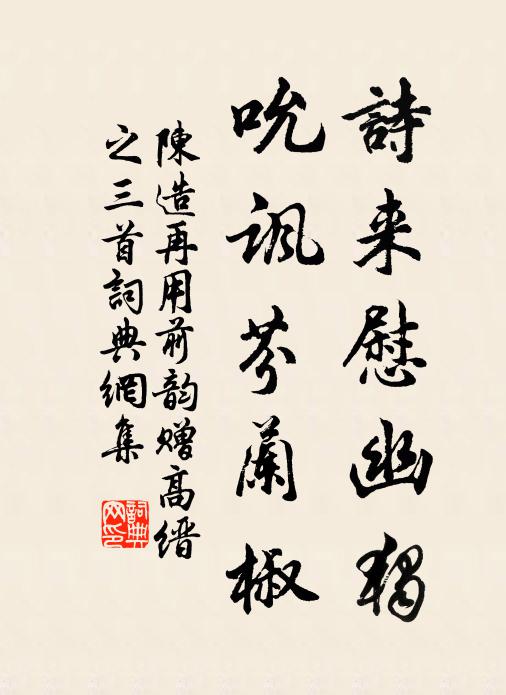 詩来慰幽獨
吮諷芬蘭椒
陳造再用前韵贈高縉
之三首詞典網集
詞典网印